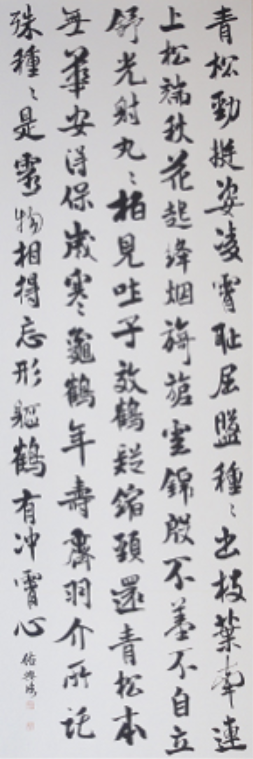 青松勁挺姿凌霄恥屈盤種〻出枝葉牽連
上松端秋花起絳烟旖旎雲錦殷不羞不自立
舒光射丸〻柏見吐子效鶴疑縮頸還青松本
無華安得保歲寒〻龜鶴年壽齊羽介所託
殊種〻是靈物相得忘形軀鶴有沖霄心